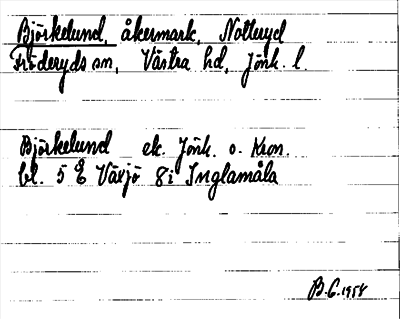 Björkelund, åkermark, Notteryd
Fröderyds sn, Västra hd, Jönk. l.
Björkelund ek. Jönk. o. Kron.
bl. 5 E Växjö 8i Inglamåla
B.G. 1958